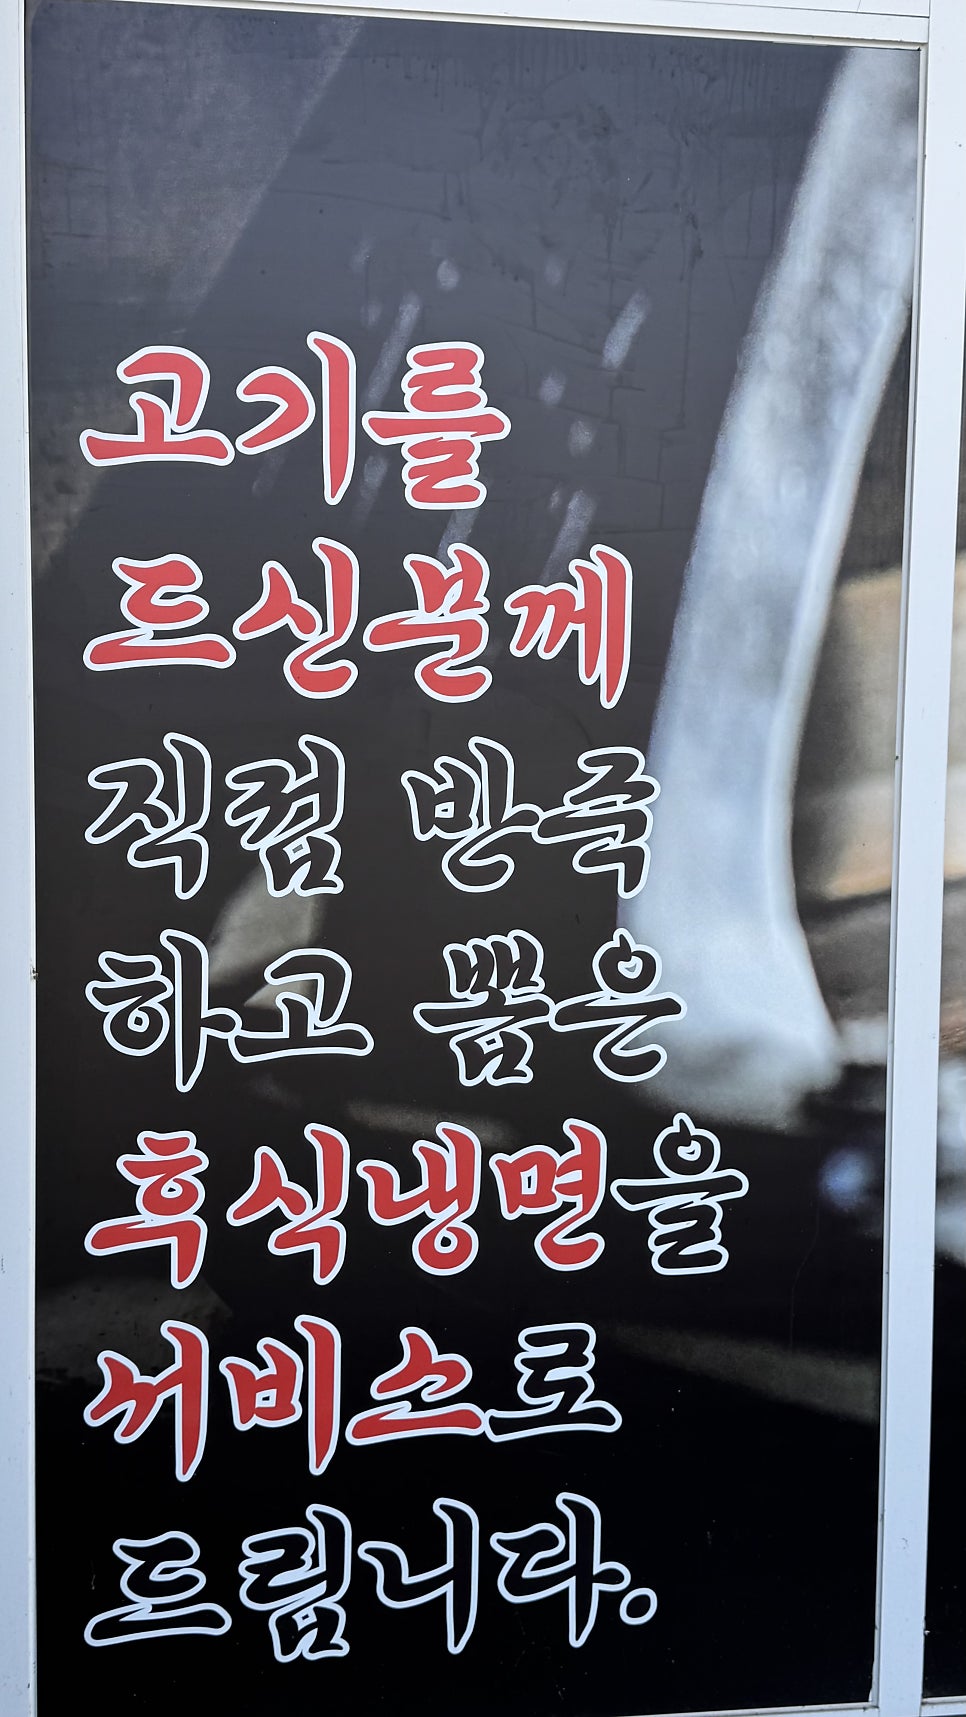 고기를
드신분께
직접 반죽
하고 뽑은
후식냉면을
서비스로
드립니다.